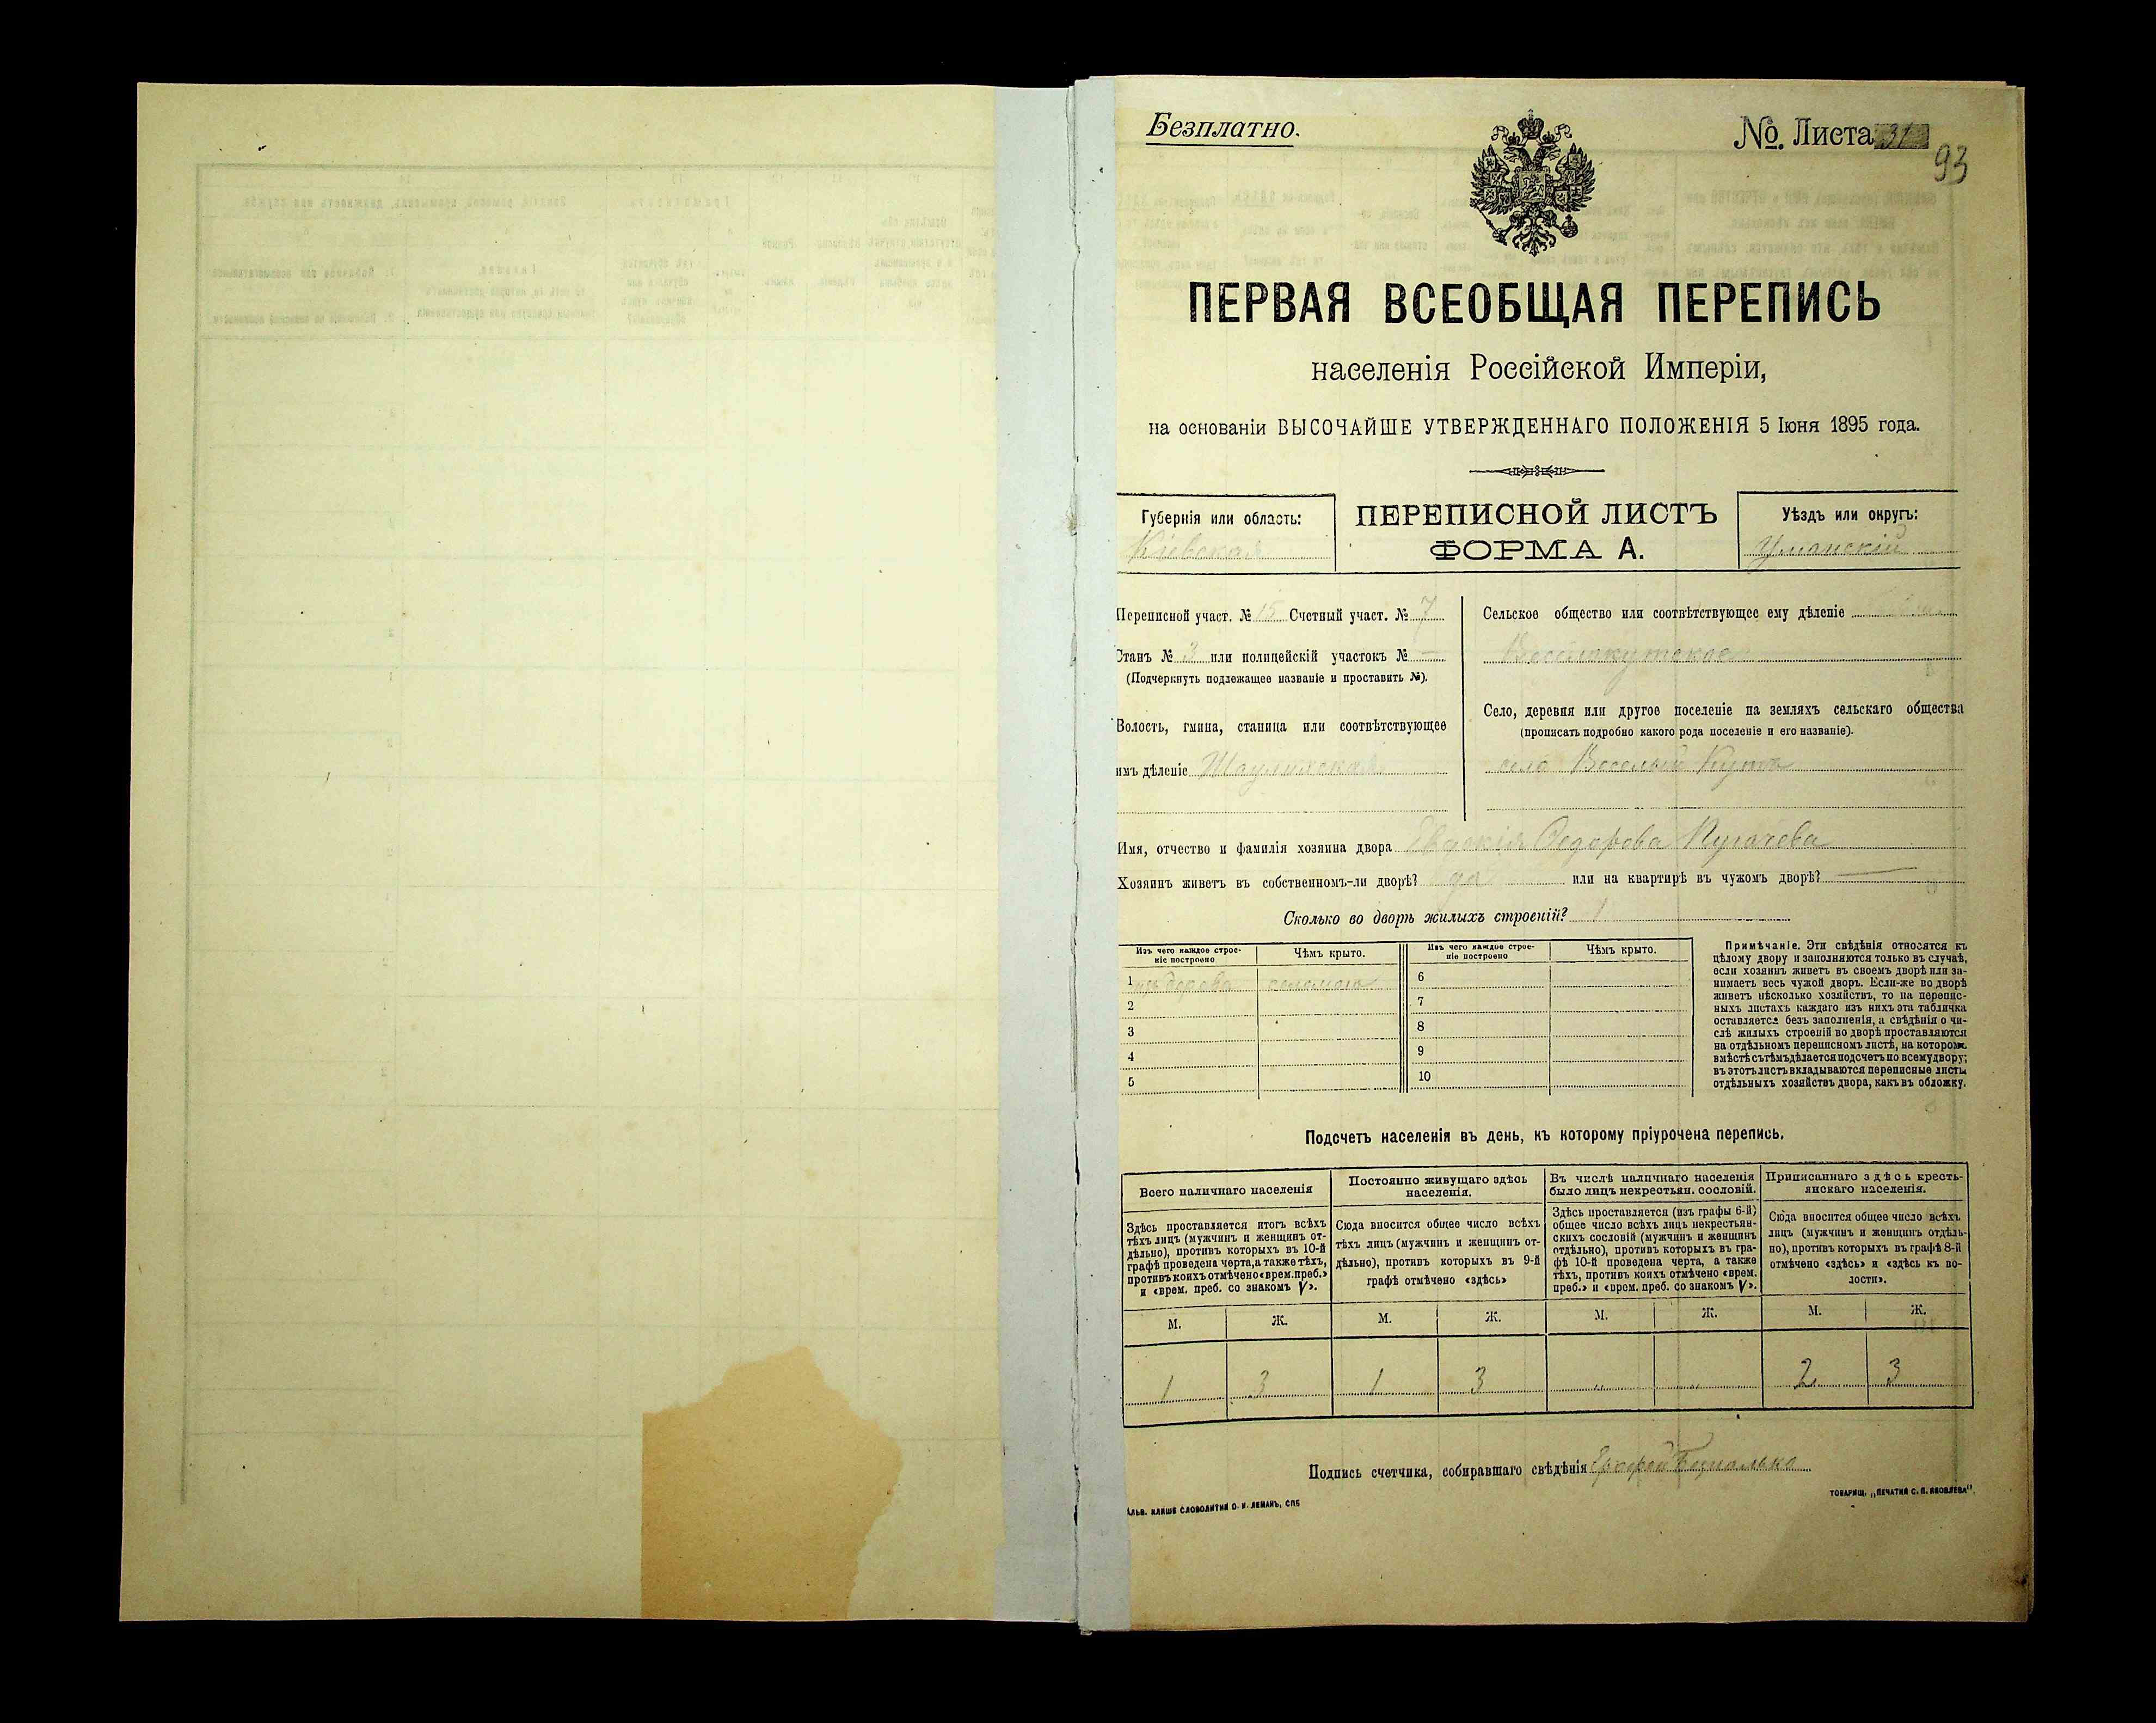 Безплатно.
№. Листа 31
93
ПЕРВАЯ ВСЕОБЩАЯ ПЕРЕПИСЬ
населенія Россійской Имперіи,
на основаніи ВЫСОЧАЙШЕ УТВЕРЖДЕННАГО ПОЛОЖЕНІЯ 5 Іюня 1895 года.
Губернія или область:
Кіевская
ПЕРЕПИСНОЙ ЛИСТЪ
ФОРМА А.
Уѣздъ или округъ:
Уманскій
Переписной участ. № 15 Счетный участ. № 7
Станъ № 3 или полицейскій участокъ № —
(Подчеркнуть подлежащее названіе и проставить №).
Волость, гмина, станица или соотвѣтствующее
имъ дѣленіе
Сельское общество или соотвѣтствующее ему дѣленіе
Веселокутское
Село, деревня или другое поселеніе на земляхъ сельскаго общества
(прописать подробно какого рода поселеніе и его названіе).
село Веселый Кутъ
Имя, отчество и фамилія хозяина двора Евдокія Федорова Пугачева
Хозяинъ живетъ въ собственномъ-ли дворѣ? да или на квартирѣ въ чужомъ дворѣ? —
Сколько во дворѣ жилыхъ строеній? 1
Изъ чего каждое строе-
ніе построено
Чѣмъ крыто.
Изъ чего каждое строе-
ніе построено
Чѣмъ крыто.
1 изъ дерева соломою
2
3
4
5
6
7
8
9
10
Примѣчаніе. Эти свѣдѣнія относятся къ
цѣлому двору и заполняются только въ случаѣ,
если хозяинъ живетъ въ своемъ дворѣ или за-
нимаетъ весь чужой дворъ. Если-же во дворѣ
живетъ нѣсколько хозяйствъ, то на перепис-
ныхъ листахъ каждаго изъ нихъ эта табличка
оставляется безъ заполненія, а свѣдѣнія о чи-
слѣ жилыхъ строеній во дворѣ проставляются
на отдѣльномъ переписномъ листѣ, на которомъ
вмѣстѣ съ тѣмъ дѣлается подсчетъ по всему двору;
въ этотъ листъ вкладываются переписные листы
отдѣльныхъ хозяйствъ двора, какъ въ обложку.
Подсчетъ населенія въ день, къ которому пріурочена перепись.
Всего наличнаго населенія
Постоянно живущаго здѣсь
населенія.
Въ числѣ наличнаго населенія
было лицъ некрестьян. сословій.
Приписаннаго здѣсь кресть-
янскаго населенія.
Здѣсь проставляется итогъ всѣхъ
тѣхъ лицъ (мужчинъ и женщинъ от-
дѣльно), противъ которыхъ въ 10-й
графѣ проведена черта, а также тѣхъ,
противъ коихъ отмѣчено «врем. преб.»
и «врем. преб. со знакомъ V».
Сюда вносится общее число всѣхъ
тѣхъ лицъ (мужчинъ и женщинъ от-
дѣльно), противъ которыхъ въ 9-й
графѣ отмѣчено «здѣсь»
Здѣсь проставляется (изъ графы 6-й)
общее число всѣхъ лицъ некрестьян-
скихъ сословій (мужчинъ и женщинъ
отдѣльно), противъ которыхъ въ гра-
фѣ 10-й проведена черта, а также
тѣхъ, противъ коихъ отмѣчено «врем.
преб.» и «врем. преб. со знакомъ V».
Сюда вносится общее число всѣхъ
лицъ (мужчинъ и женщинъ отдѣль-
но), противъ которыхъ въ графѣ 8-й
отмѣчено «здѣсь» и «здѣсь къ во-
лости».
М. Ж. М. Ж. М. Ж. М. Ж.
1 3 1 3 „ „ 2 3
Подпись счетчика, собиравшаго свѣдѣнія
ГАЛЬВ. КЛИШЕ СЛОВОЛИТНИ О. И. ЛЕМАНЪ, СПБ
ТОВАРИЩ. „ПЕЧАТНЯ С. П. ЯКОВЛЕВА".